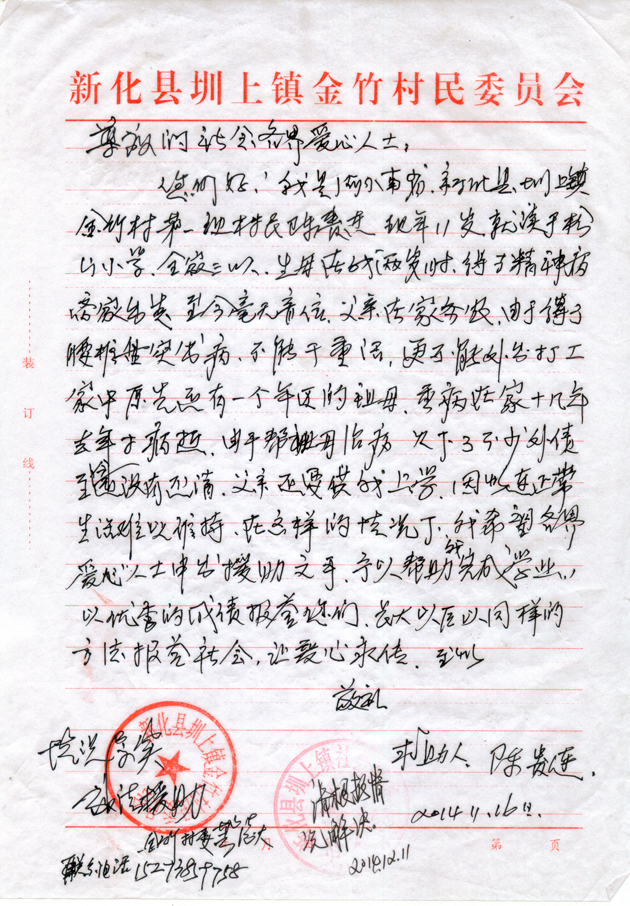 新化县圳上镇金竹村民委员会
尊敬的社会各界爱心人士：
您们好！我是湖南省新化县圳上镇
金竹村第一组村民陈贵连 现年11岁 就读于
山小学 全家三口人 生母在我两岁时 得了精神病
离家出走 至今毫无音信 父亲在家务农 由于得了
腰椎盘突出病 不能干重活 更不能外出打工
家中原先还有一个年迈的祖母 重病在家十几年
去年才病逝 由于帮祖母治病 欠下了不少外债
至今没有还清 父亲还要供我上学 因此连正常
生活难以维持 在这样的情况下 我希望各界
爱心人士伸出援助之手 予以帮助我完成学业
以优秀的成绩报答您们 长大以后以同样的
方法报答社会，让爱心永传 至此
敬礼
求助人 陈贵连
2014.11.16日
情况属实
请根据情
况解决
2014.12.11
金竹村委
联系电话
装订线
第 页